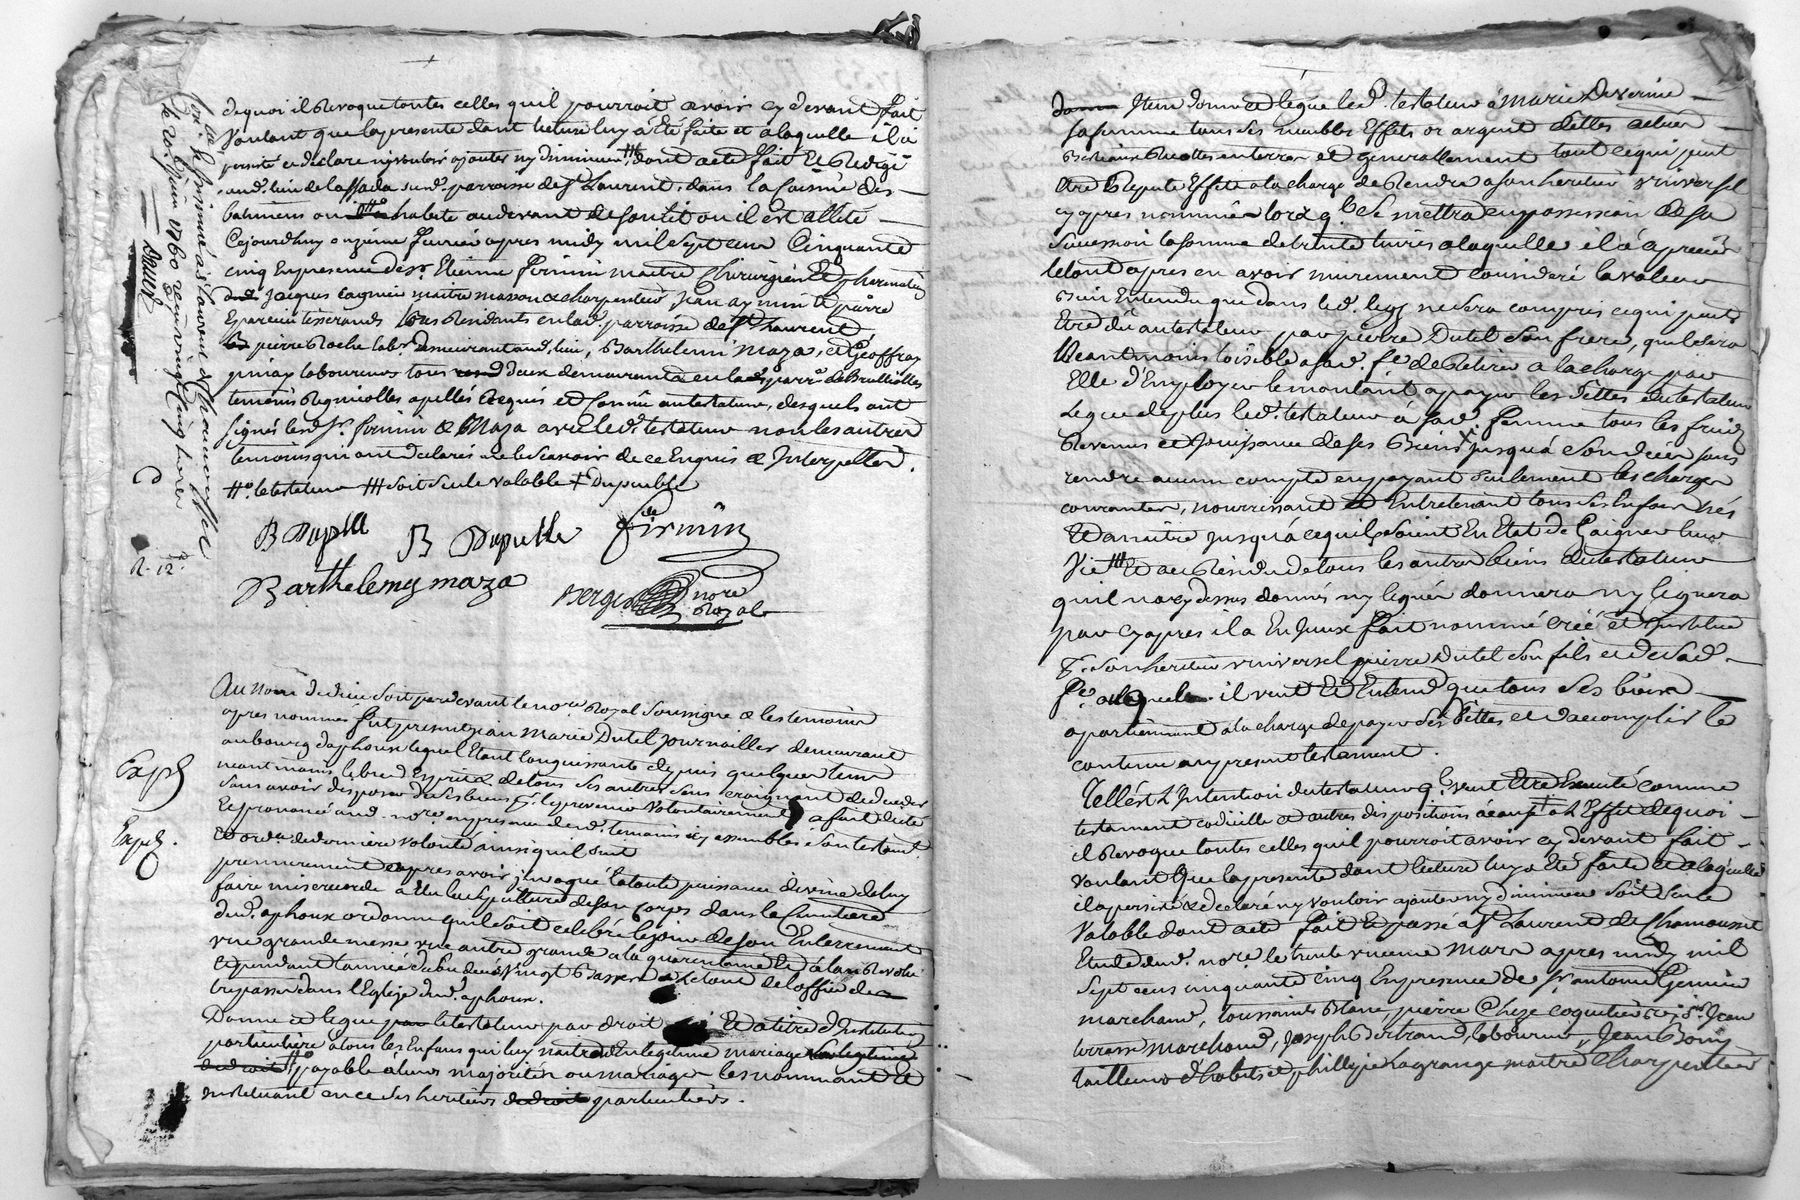 dequoi il Revoque toutes celles quil pourroit avoir cy devant fait
Voulant que la presente dont lecture luy a été faite et a laquelle il a
persisté et declaré ny vouloir ajouter ny diminuer dont acte fait Et Redigé
aud. lieu de lassada sud. parroisse de St Laurent, dans la Cuisine des
batimens ou habite audevant de son lit ou il est allité
Cejourdhuy onzieme fevrier apres midy mil sept cens Cinquante
cinq En presence de sr. Etienne firmin maitre Chirurgien Et
Jacques maitre masson & charpentier jean aymin & pierre
tisserands tous Residants en lad. parroisse de St Laurent
pierre Roche labr. demeurant aud. lieu, Barthelemi Maza, et Geoffray
laboureurs tous deux demeurants en la parr. de Brullioles
temoins Regnicolles apellés Requis et Connus au testateur, desquels ont
signés lesd. srs. firmin & Maza avec led. testateur non les autres
temoins qui ont declarés ne le sçavoir de ce Enquis & Interpellés.
le testateur soit seule valable Dupuble
B Dupble B Dupuble de firmin
Barthelemy maza
nore Royal
Au nom de dieu soit pardevant le nore. Royal soussigné & les temoins
apres nommés fut present jean Marie Dutel journaillier demeurant
au bourg daphoux lequel Etant languissante depuis quelques tems
neantmoins libre d'Esprit & de tous ses autres sens craignant de deceder
sans avoir disposer de ses biens pour y prevenir Volontairement a fait dicté
Et prononcé aud. nore en presence desd. temoins icy assemblés son testament
Et ordce. de derniere volonté ainsi quil suit
premierement apres avoir invoqué la toute puissance divine de luy
faire misericorde a Elu la sepulture de son Corps dans le Cimetiere
dud. aphoux ordonne quil soit celebré le jour de son Enterrement
une grande messe une autre grande a la quarantaine Et à lan Revolu
Et pendant lannée de son decés Vingt Basses & letout de loffice des
trepassés dans l'Eglise dud. aphoux.
Donne et legue le testateur par droit Et a titre d'Institution
particuliere a tous les Enfans qui luy naitront En legitime mariage
payable à leurs majorités ou mariages les nommant Et
instituant en ce ses heritiers particuliers.
Exp
Exp.
Item donne et legue led. testateur à Marie Deverine
sa femme tous ses meubles Effets or argent dettes actives
Bestiaux Recoltes en terres et generallement tout ce qui peut
Etre Reputé Effets a la charge de Rendre a son heritier universel
cy apres nommé lors quil se mettra en possession de sa
succession la somme de trente livres a laquelle il a apprecié
letout apres en avoir murement consideré la valeur
Bien Entendu que dans led. legs ne sera compris ce qui peut
Etre dû au testateur par pierre Dutel son frere, quil sera
Neantmoins loisible a sad. fe. de Retirer a la charge par
Elle d'Employer le montant a payer les dettes du testateur
Legue de plus led. testateur à sad. femme tous les fruits
Revenus et Jouissance de ses Biens jusqu'à son decés sans
rendre aucun compte en payant seulement les charges
courantes, nourrissant et Entretenant tous ses Enfans nés
Et a naitre jusqu'à ce quils soient En Etat de Gaigner leur
Vie Et au Residu de tous les autres biens du testateur
quil na cy dessus donnés ny legués donnera ny leguera
par cy apres il a En Iceux fait nommé créé et Institué
son heritier universel pierre Dutel son fils et de sad.
fe. il veut Et Entend que tous ses biens
apartiennent a la charge de payer ses dettes et d'accomplir le
contenu au present testament.
Telle est l'Intention du testateur quil veut Etre Executé comme
testament codicille et autres dispositions a cause a l'Effet de quoi
il Revoque toutes celles quil pourroit avoir cy devant fait
Voulant Que la presente dont lecture luy a Eté faite Et a laquelle
il a persisté & declaré ny vouloir ajouter ny diminuer soit seule
Valable dont acte fait Et passé à St Laurent de Chamousset
Etude dud. nore. le trente unieme Mars apres midy mil
sept cens cinquante cinq En presence de sr antoine
marchand, toussaints Blanc, pierre Cheze coquetier sr. Jean
terrasse marchand, Joseph Bertrand, laboureur, Jean Bony
tailleur d'habits et phillipe Lagrange maitre Charpentier